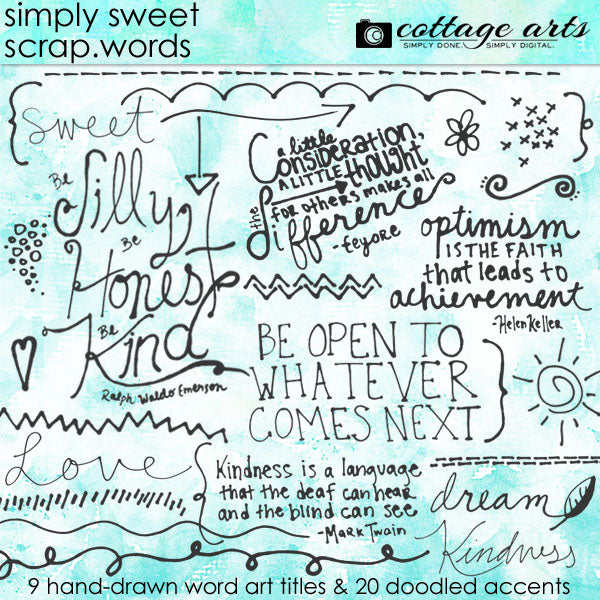 simply sweet
scrap.words
cottage arts
SIMPLY DONE. SIMPLY DIGITAL.
Sweet
Be
Silly
Be
Honest
Be
Kind
Ralph Waldo Emerson
a little
Consideration,
A LITTLE thought
the FOR OTHERS makes all
difference
-Eeyore
optimism
IS THE FAITH
that leads to
achievement
-Helen Keller
BE OPEN TO
WHATEVER
COMES NEXT
Love
Kindness is a language
that the deaf can hear
and the blind can see
-MARK TWAIN
dream
Kindness
9 hand-drawn word art titles & 20 doodled accents